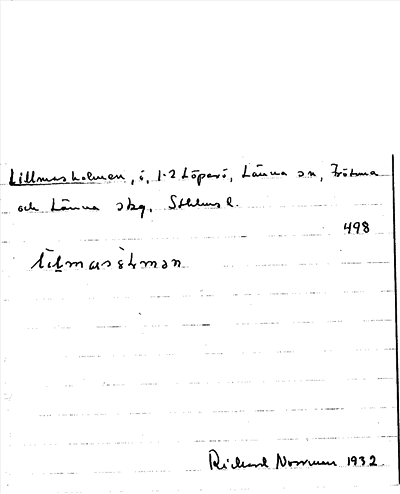 Lillmasholmen, ö, 1-2 Löparö, Länna sn, Frötuna
och Länna skg, Sthlms l.
498
Richard Norrman 1932